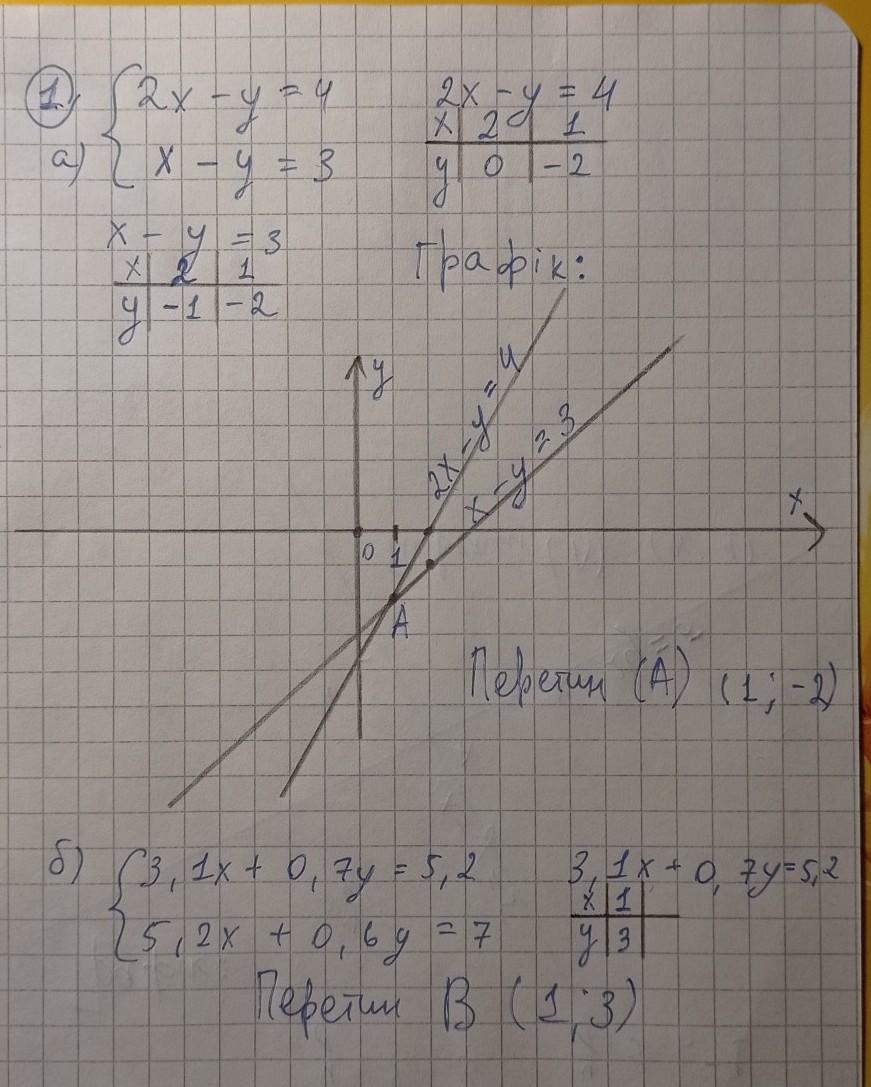 1. 2x - y = 4
а) x - y = 3
2x - y = 4
x | 2 | 1
y | 0 | -2
x - y = 3
x | 2 | 1
y | -1 | -2
Графік:
y
2x - y = 4
x - y = 3
x
0 1
A
Перетин (A) (1; -2)
б) 3,1x + 0,7y = 5,2
5,2x + 0,6y = 7
3,1x + 0,7y = 5,2
x | 1
y | 3
Перетин B (1; 3)